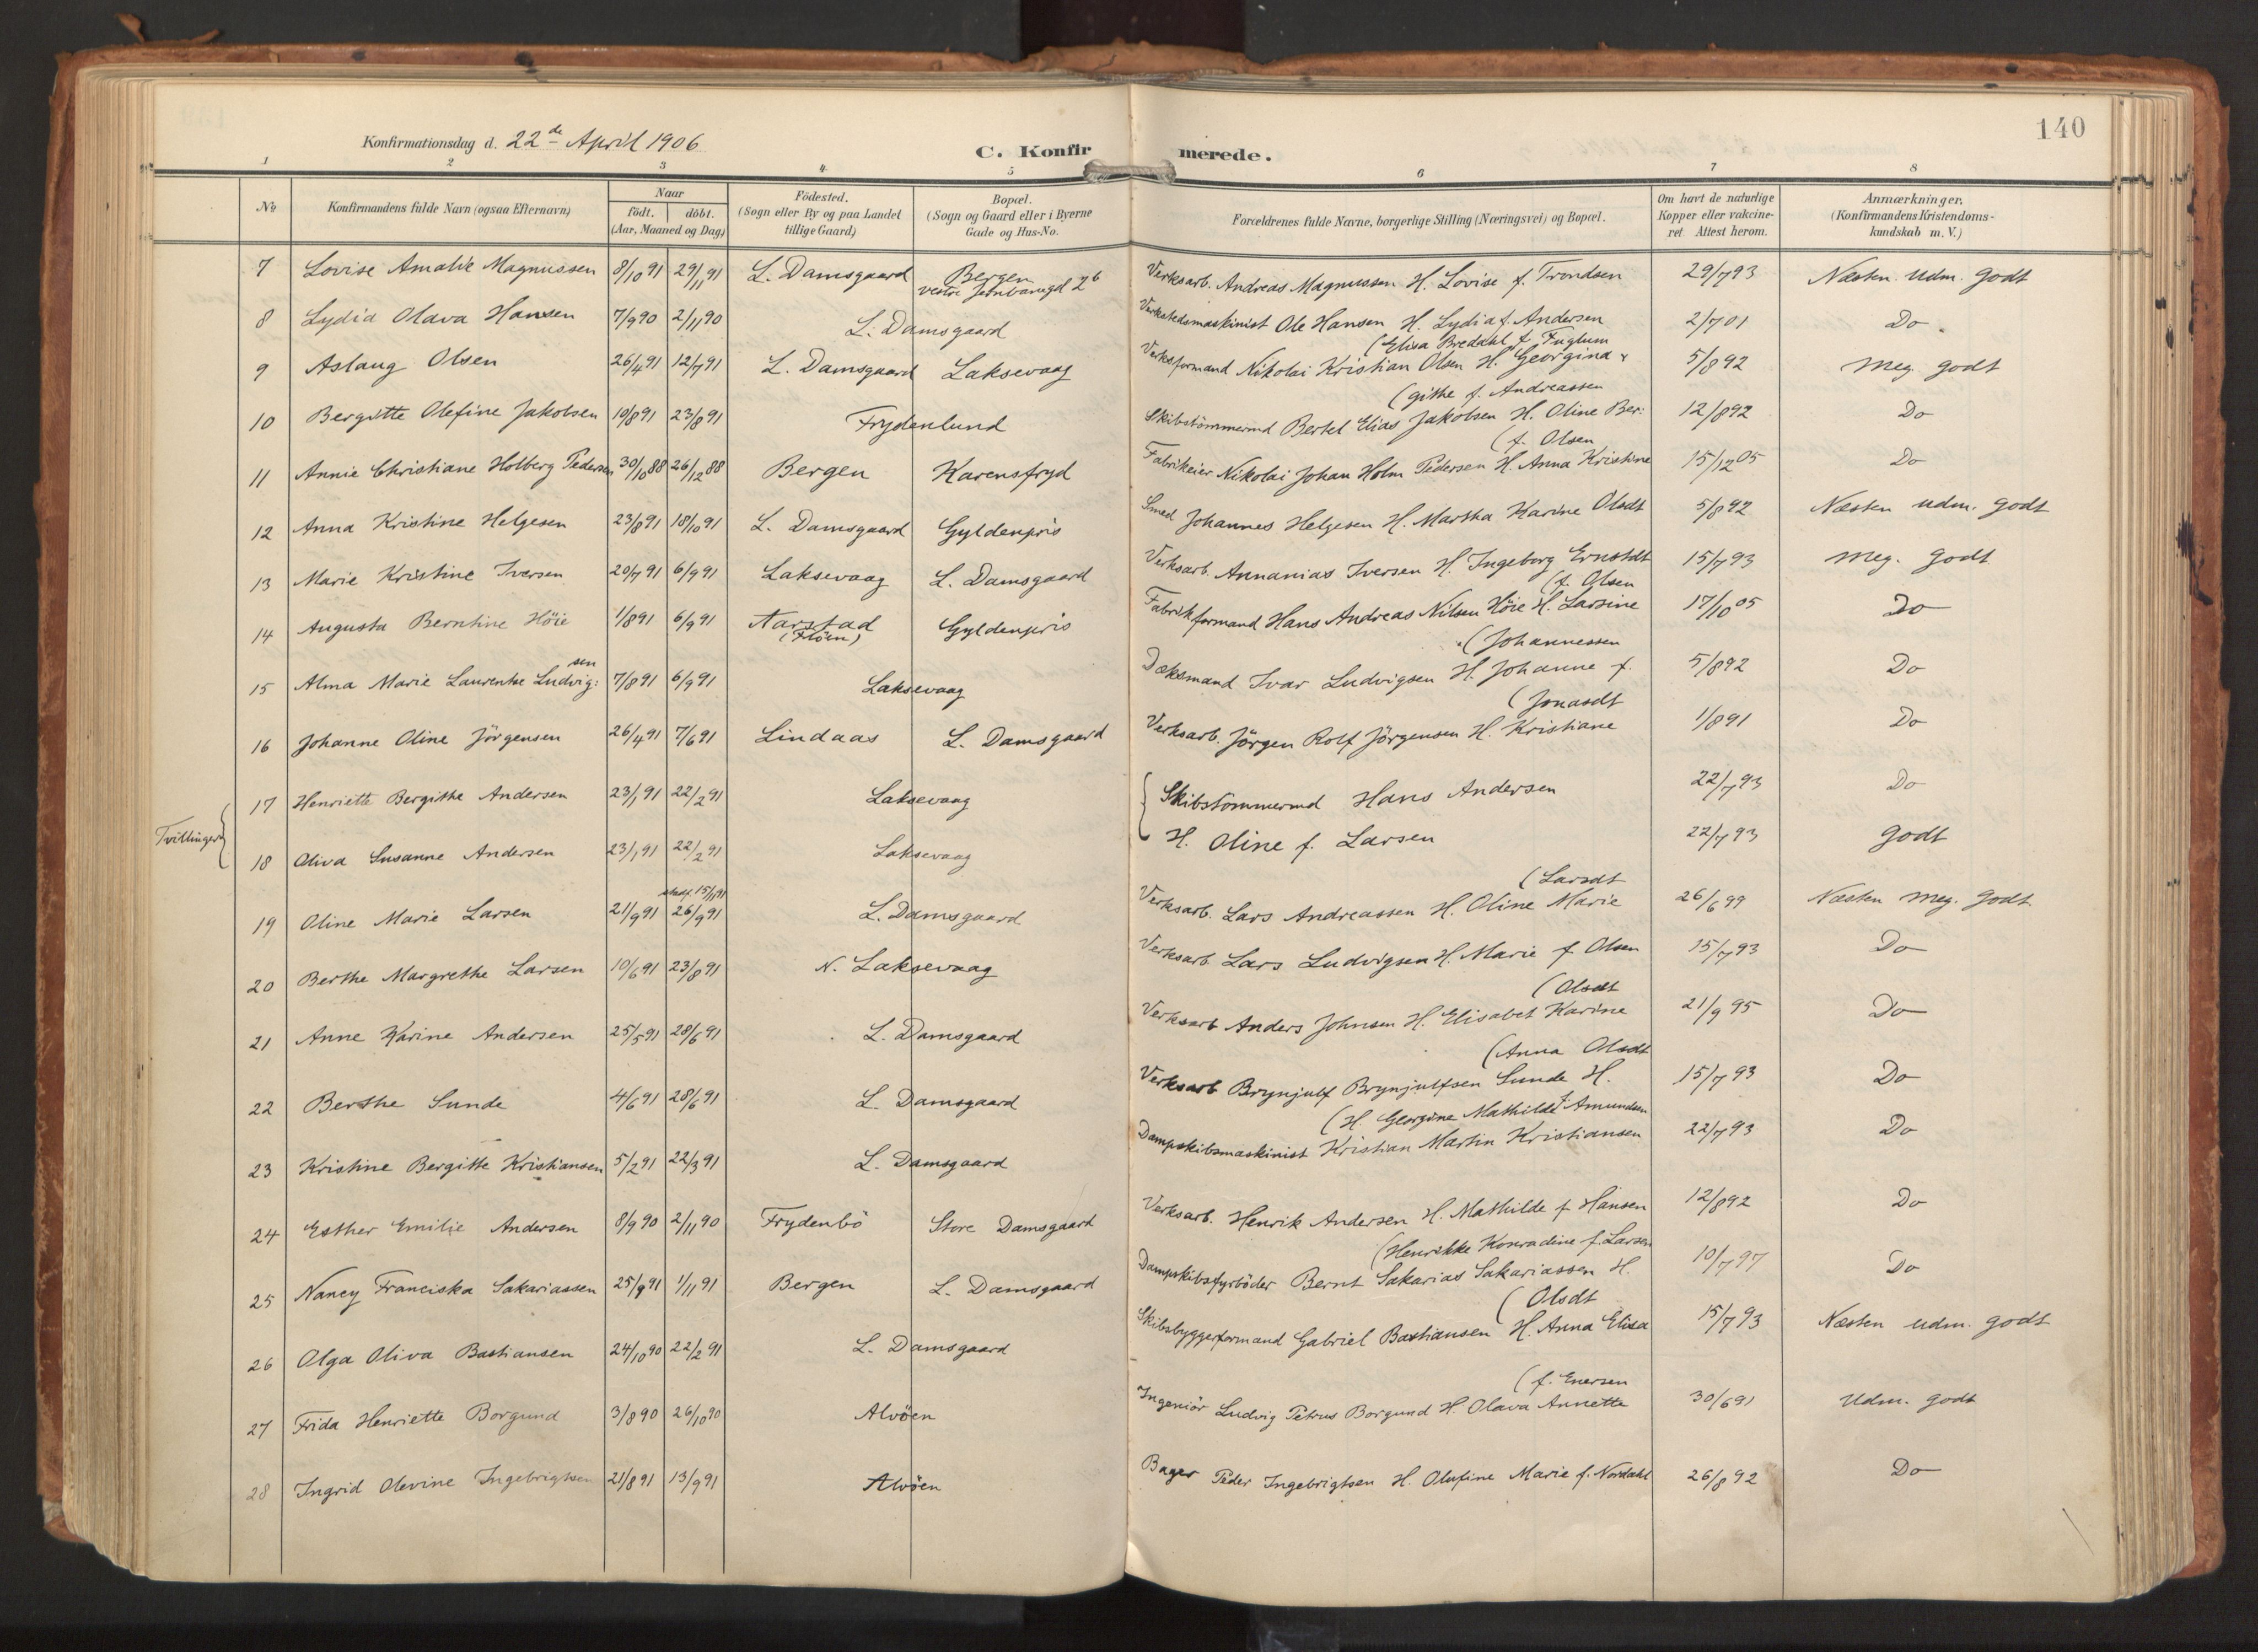 140
Konfirmationsdag d. 22de April 1906
C. Konfirmerede.
1 2 3 4 5 6 7 8
No
Konfirmandens fulde Navn (ogsaa Efternavn)
Naar
födt. döbt.
(Aar, Maaned og Dag)
Födested.
(Sogn eller By og paa Landet
tillige Gaard)
Bopæl.
(Sogn og Gaard eller i Byerne
Gade og Hus-No.
Forældrenes fulde Navne, borgerlige Stilling (Næringsvei) og Bopæl.
Om havt de naturlige
Kopper eller vakcine-
ret Attest herom.
Anmærkninger.
(Konfirmandens Kristendoms-
kundskab m.V.)
7 Lovise Amalie Magnussen 8/10 91 29/11 91 L. Damsgaard Bergen
vestre 2b
Verksarb. Andreas Magnussen H. Lovise f. Trondsen 29/7 93 Næsten udm. godt
8 Lydia Olava Hansen 7/9 90 2/11 90 L. Damsgaard Verkstedsmaskinist Ole Hansen H. Lydia f. Andersen 2/7 01 Do
(Elisa Bredahl f. Fuglum
9 Aslaug Olsen 26/4 91 12/7 91 L. Damsgaard Laksevaag Verksformand Nikolai Kristian Olsen H. Georgina 5/8 92 Meg. godt
(githe f. Andreassen
10 Bergitte Olefine Jakobsen 10/8 91 23/8 91 Frydenlund Skibstömmermd Bertel Elias Jakobsen H. Oline Ber: 12/8 92 Do
(f. Olsen
11 Annie Christiane Holberg Pedersen 30/10 88 26/12 88 Bergen Karensfryd Fabrikeier Nikolai Johan Holm Pedersen H. Anna Kristine 15/12 05 Do
12 Anna Kristine Helgesen 23/8 91 18/10 91 L. Damsgaard Gyldenpris Smed Johannes Helgesen H. Martha Karine Olsdt 5/8 92 Næsten udm. godt
13 Marie Kristine Iversen 20/7 91 6/9 91 Laksevaag L. Damsgaard Verksarb. Annanias Iversen H. Ingeborg Ernstdt 15/7 93 Meg. godt
(f. Olsen
14 Augusta Berntine Höie 1/8 91 6/9 91 Aarstad
(Flöen)
Gyldenpris Fabrikformand Hans Andreas Nilsen Höie H. Larsine 17/10 05 Do
(Johannessen
sen
15 Alma Marie Laurentse Ludvig: 7/8 91 6/9 91 Laksevaag Dæksmand Ivar Ludvigsen H. Johanne f. 5/8 92 Do
(Jonasdt
16 Johanne Oline Jörgensen 26/4 91 7/6 91 Lindaas L. Damsgaard Verksarb. Jörgen Rolf Jörgensen H. Kristiane 1/8 91 Do
17 Henriette Bergithe Andersen 23/1 91 22/2 91 Laksevaag Skibstömmermd Hans Andersen 22/7 93 Do
Tvillinger
18 Oliva Susanne Andersen 23/1 91 22/2 91 Laksevaag H. Oline f. Larsen 22/7 93 godt
stadf. 15/11 91
(Larsdt
19 Oline Marie Larsen 21/9 91 26/9 91 L. Damsgaard Verksarb. Lars Andreassen H. Oline Marie 26/6 99 Næsten meg. godt
20 Berthe Margrethe Larsen 10/6 91 23/8 91 N. Laksevaag Verksarb. Lars Ludvigsen H. Marie f Olsen 15/7 93 Do
(Olsdt
21 Anne Karine Andersen 25/5 91 28/6 91 L. Damsgaard Verksarb Anders Johnsen H. Elisabet Karine 21/9 95 Do
(Anna Olsdt
22 Berthe Sunde 4/6 91 28/6 91 L. Damsgaard Verksarb Brynjulf Brynjulfsen Sunde H. 15/7 93 Do
(H. Georgine Mathilde f. Amundsen
23 Kristine Bergitte Kristiansen 5/2 91 22/3 91 L. Damsgaard Dampskibsmaskinist Kristian Martin Kristiansen 22/7 93 Do
24 Esther Emilie Andersen 8/9 90 2/11 90 Frydenbö Store Damsgaard Verksarb. Henrik Andersen H. Mathilde f Hansen 12/8 92 Do
(Henrikke Konradine f. Larsen
25 Nancy Franciska Sakariassen 25/9 91 1/11 91 Bergen L. Damsgaard Dampskibsfyrböder Bernt Sakarias Sakariassen H. 10/7 97 Do
(Olsdt
26 Olga Oliva Bastiansen 24/10 90 22/2 91 L. Damsgaard Skibsbyggerformand Gabriel Bastiansen H. Anna Elisa 15/7 93 Næsten udm. godt
(f. Enersen
27 Frida Henriette Borgund 3/8 90 26/10 90 Alvöen Ingeniör Ludvig Petrus Borgund H. Olava Annette 30/6 91 Udm. godt
28 Ingrid Olevine Ingebrigtsen 21/8 91 13/9 91 Alvöen Bager Peder Ingebrigtsen H. Olufine Marie f. Nordahl 26/8 92 Do